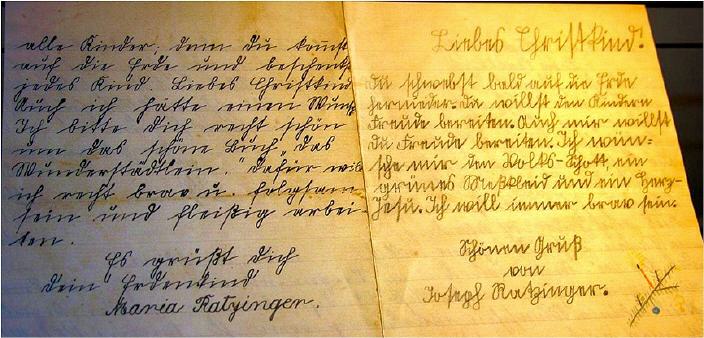 alle Kinder, denn du kommst
auf die Erde und beschenkst
jedes Kind. Liebes Christkind
Auch ich hätte einen Wunsch
Ich bitte Dich recht schön
um das schöne Buch „Das
Wunderstädtlein." Dafür will
ich recht brav u. folgsam
sein und fleißig arbei-
ten.
Es grüßt Dich
Dein Erdenkind
Maria Ratzinger.
Liebes Christkind!
Du schwebst bald auf die Erde
hernieder. Du willst den Kindern
Freude bereiten. Auch mir willst
du Freude bereiten. Ich wün-
sche mir den Volks-Schott, ein
grünes Meßkleid und ein Herz-
Jesu. Ich will immer brav sein.
Schönen Gruß
von
Joseph Ratzinger.